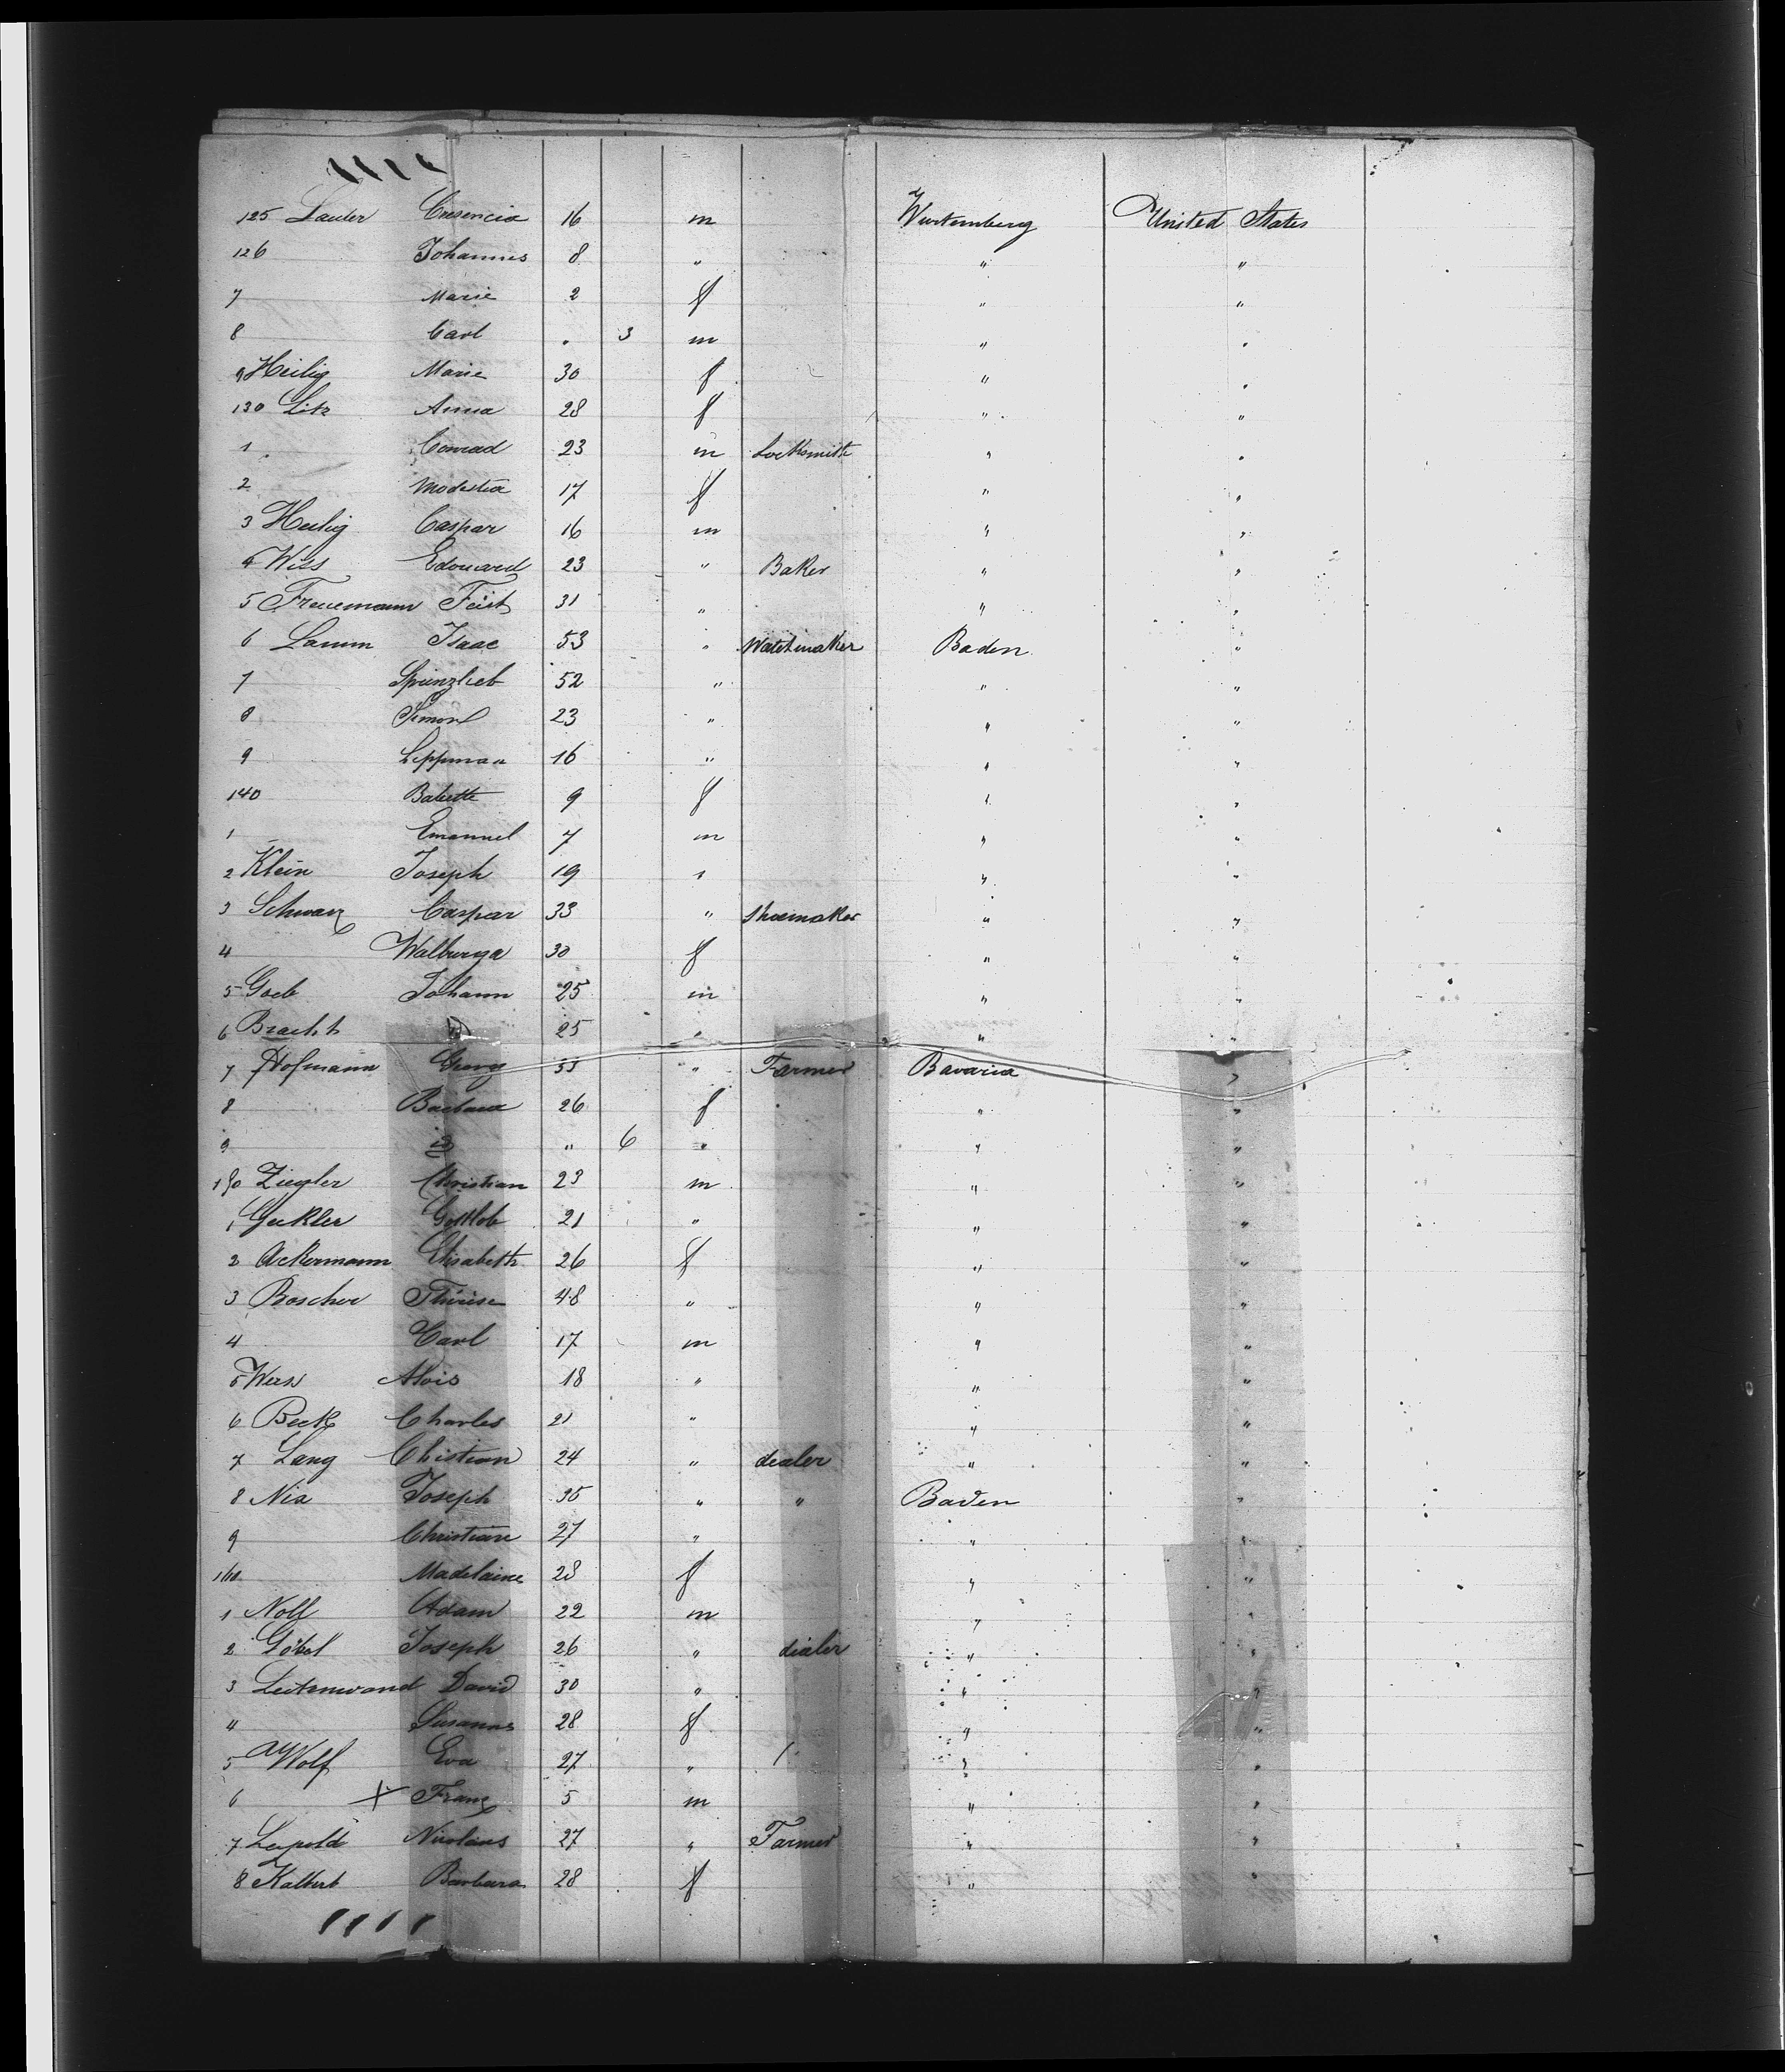 125 Lauter Cresencia 16 m Wurtemberg United States
126 Johannes 8 " " "
7 Marie 2 f " "
8 Carl " 3 m " "
9 Heilig Marie 30 f " "
130 Litz Anna 28 f " "
1 Conrad 23 m Locksmith " "
2 Modesta 17 f " "
3 Heilig Caspar 16 m " "
4 Wiss Edouard 23 " Baker " "
5 Freuemann Feist 31 " " "
6 Lamm Isaac 53 " Watchmaker Baden "
7 52 " " "
8 Simon 23 " " "
9 Lippman 16 " " "
140 Babette 9 f " "
1 Emanuel 7 m " "
2 Klein Joseph 19 " " "
3 Schwarz Caspar 33 " Shoemaker " "
4 Walburga 30 f " "
5 Goeb Johann 25 m " "
6 Bracht 25 " " "
7 Hofmann Georg 33 " Farmer Bavaria "
8 Barbara 26 f " "
9 " 6 " " "
150 Ziegler Christian 23 m " "
1 Geckler Gottlob 21 " " "
2 Ackermann Elisabeth 26 f " "
3 Boscher Thérèse 48 " " "
4 Carl 17 m " "
5 Weis Alois 18 " " "
6 Beck Charles 21 " " "
7 Lang Christian 24 " dealer " "
8 Nix Joseph 35 " " Baden "
9 Christian 27 " " "
160 Madelaine 28 f " "
1 Noll Adam 22 m " "
2 Göbel Joseph 26 " dealer " "
3 David 30 " " "
4 Susanna 28 f " "
5 Wolf Eva 27 " " "
6 + Franz 5 m " "
7 Leypold Nicolaus 27 " Farmer " "
8 Barbara 28 f " "